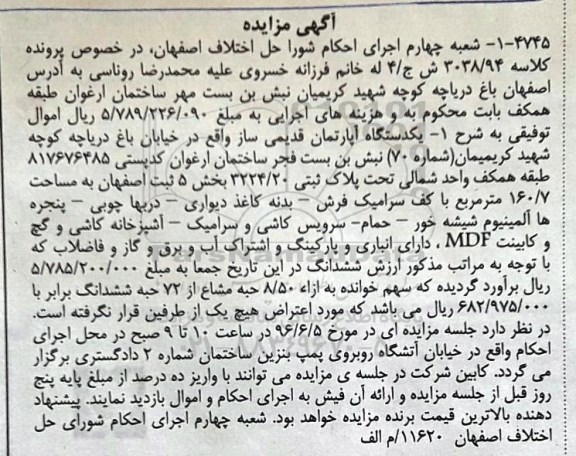 آگهی مزایده
۴۷۴۵-۱- شعبه چهارم اجرای احکام شورا حل اختلاف اصفهان، در خصوص پرونده
کلاسه ۳۰۳۸/۹۴ ش ج/۴ له خانم فرزانه خسروی علیه محمدرضا روناسی به آدرس
اصفهان باغ دریاچه کوچه شهید کریمیان نبش بن بست مهر ساختمان ارغوان طبقه
همکف بابت محکوم به و هزینه های اجرایی به مبلغ ۵/۷۸۹/۲۲۶/۰۹۰ ریال اموال
توقیفی به شرح ۱- یکدستگاه آپارتمان قدیمی ساز واقع در خیابان باغ دریاچه کوچه
شهید کریمیمان(شماره ۷۰) نبش بن بست فجر ساختمان ارغوان کدپستی ۸۱۷۶۷۶۴۸۵
طبقه همکف واحد شمالی تحت پلاک ثبتی ۳۲۲۴/۲۰ بخش ۵ ثبت اصفهان به مساحت
۱۶۰/۷ مترمربع با کف سرامیک فرش – بدنه کاغذ دیواری – دربها چوبی – پنجره
ها آلمینیوم شیشه خور – حمام- سرویس کاشی و سرامیک – آشپزخانه کاشی و گچ
و کابینت MDF ، دارای انباری و پارکینگ و اشتراک آب و برق و گاز و فاضلاب که
با توجه به مراتب مذکور ارزش ششدانگ در این تاریخ جمعا به مبلغ ۵/۷۸۵/۲۰۰/۰۰۰
ریال برآورد گردیده که سهم خوانده به ازاء ۸/۵۰ حبه مشاع از ۷۲ حبه ششدانگ برابر با
۶۸۲/۹۷۵/۰۰۰ ریال می باشد که مورد اعتراض هیچ یک از طرفین قرار نگرفته است.
در نظر دارد جلسه مزایده ای در مورخ ۹۶/۶/۵ در ساعت ۱۰ تا ۹ صبح در محل اجرای
احکام واقع در خیابان آتشگاه روبروی پمپ بنزین ساختمان شماره ۲ دادگستری برگزار
می گردد. کابین شرکت در جلسه ی مزایده می توانند با واریز ده درصد از مبلغ پایه پنج
روز قبل از جلسه مزایده و ارائه آن فیش به اجرای احکام و اموال بازدید نمایند. پیشنهاد
دهنده بالاترین قیمت برنده مزایده خواهد بود. شعبه چهارم اجرای احکام شورای حل
اختلاف اصفهان ۱۱۶۲۰/م الف